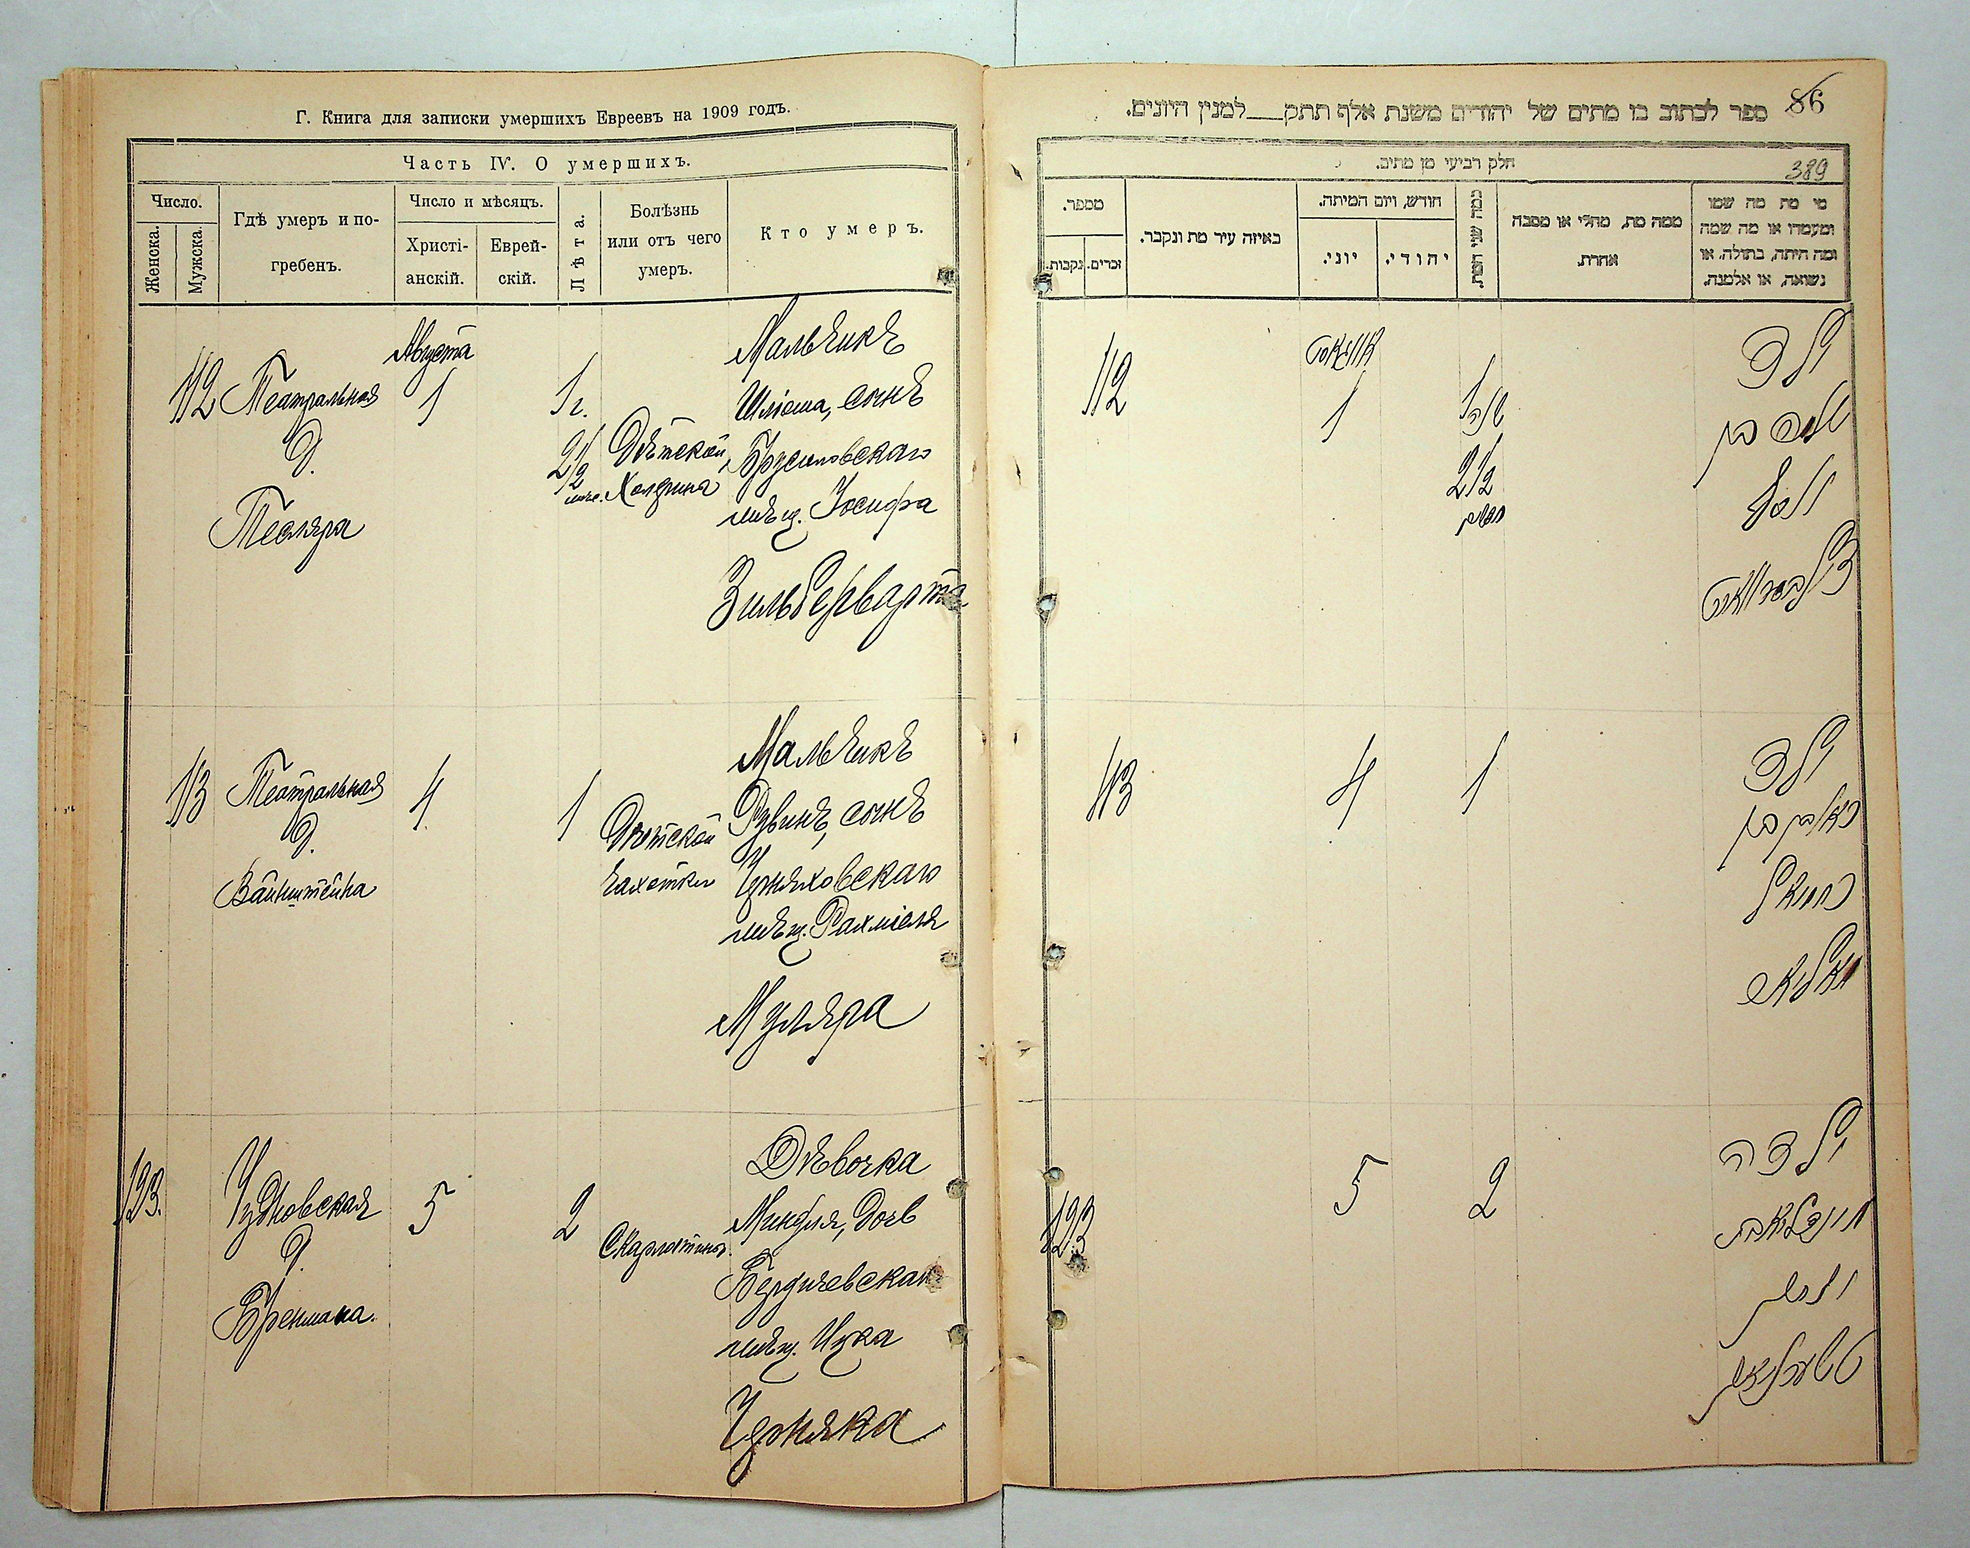 Г. Книга для записки умершихъ Евреевъ на 1909 годъ.
Часть IV. О умершихъ.
Число.
Женска.
Мужска.
Гдѣ умеръ и по-
гребенъ.
Число и мѣсяцъ.
Христі-
анскій.
Еврей-
скій.
Лѣта.
Болѣзнь
или отъ чего
умеръ.
Кто умеръ.
112
Театральная
д.
Тесляра
Августа
1
1 г.
2 1/2
мѣс.
Дѣтской
Холерина
Мальчикъ
Шліома, сынъ
Брусиловскаго
мѣщ. Іосифа
Зильберварта
113
Театральная
д.
Вайнштейна
4
1
Дѣтской
чахотки
Мальчикъ
Рувинъ, сынъ
Черняховскаго
мѣщ. Рахміеля
Муляра
123.
Чудновская
д.
Бренмана.
5
2
Скарлатины.
Дѣвочка
Миндля, дочь
Бердичевскаго
мѣщ. Ицка
Черняка
ספר לכתוב בו מתים של יהודים משנת אלף תתק___למנין היונים.
86
חלק רביעי מן מתים.
389
מספר.
נקבות.
זכרים.
באיזה עיר מת ונקבר.
חודש, ויום המיתה.
יוני.
יהודי.
כמה שני המת.
ממה מת, מחלי או מסבה
אחרת.
מי מת מה שמו
ומעמדו או מה שמה
ומה היתה, בתולה, או
נשואה, או אלמנה.
112
אווגוסט
1
1
שנה
2 1/2
חדשים
ילד
שלמה בן
יוסף
זילבערווארט
113
4
1
ילד
ראובן בן
ירחמיאל
מוליאר
123
5
2
ילדה
מינדליא בת
יצחק
טשערניאק